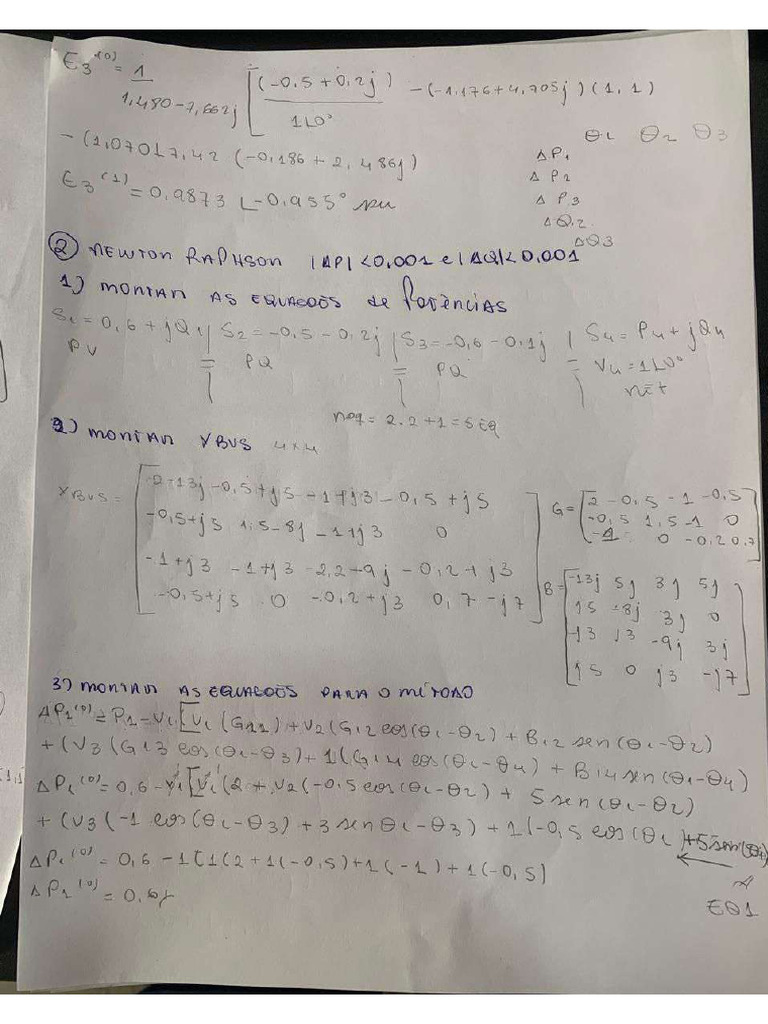 E3^(0) = 1 / 1,480-7,662j [ (-0,5+0,2j) / 1∟0° - (-1,176+4,705j)(1,1)
- (1,07∟7,42 (-0,186+2,486j)
E3^(1) = 0,9873 ∟-0,955° pu
θ1 θ2 θ3
ΔP1
ΔP2
ΔP3
ΔQ2
ΔQ3
② NEWTON RAPHSON |ΔP|<0,001 e |ΔQ|<0,001
1) MONTAR AS EQUAÇÕES de Potências
S1 = 0,6 + jQ1 | S2 = -0,5 - 0,2j | S3 = -0,6 - 0,1j | S4 = P4 + jQ4
PV PQ PQ V4 = 1∟0°
neq = 2.2+1 = 5 EQ
2) MONTAR YBUS 4x4
YBUS =
2-13j -0,5+j5 -1+j3 -0,5+j5
-0,5+j5 1,5-8j -1+j3 0
-1+j3 -1+j3 -2,2-9j -0,2+j3
-0,5+j5 0 -0,2+j3 0,7-j7
G =
2 -0,5 -1 -0,5
-0,5 1,5 -1 0
-1 0 -0,2 0,7
B =
-13j 5j 3j 5j
j5 -8j 3j 0
j3 j3 -9j 3j
j5 0 j3 -j7
3) MONTAR AS EQUAÇÕES PARA O MÉTODO
ΔP1^(0) = P1 - V1 [V1 (G11) + V2 (G12 cos(θ1-θ2) + B12 sen(θ1-θ2)
+ (V3 (G13 cos(θ1-θ3) + 1(G14 cos(θ1-θ4) + B14 sen(θ1-θ4)
ΔP1^(0) = 0,6 - V1 [V1 (2 + V2 (-0,5 cos(θ1-θ2) + 5 sen(θ1-θ2)
+ (V3 (-1 cos(θ1-θ3) + 3 sen θ1-θ3) + 1(-0,5 cos(θ1)
ΔP1^(0) = 0,6 - 1 [1(2+1(-0,5)+1(-1)+1(-0,5)
ΔP1^(0) = 0,6
EQ1